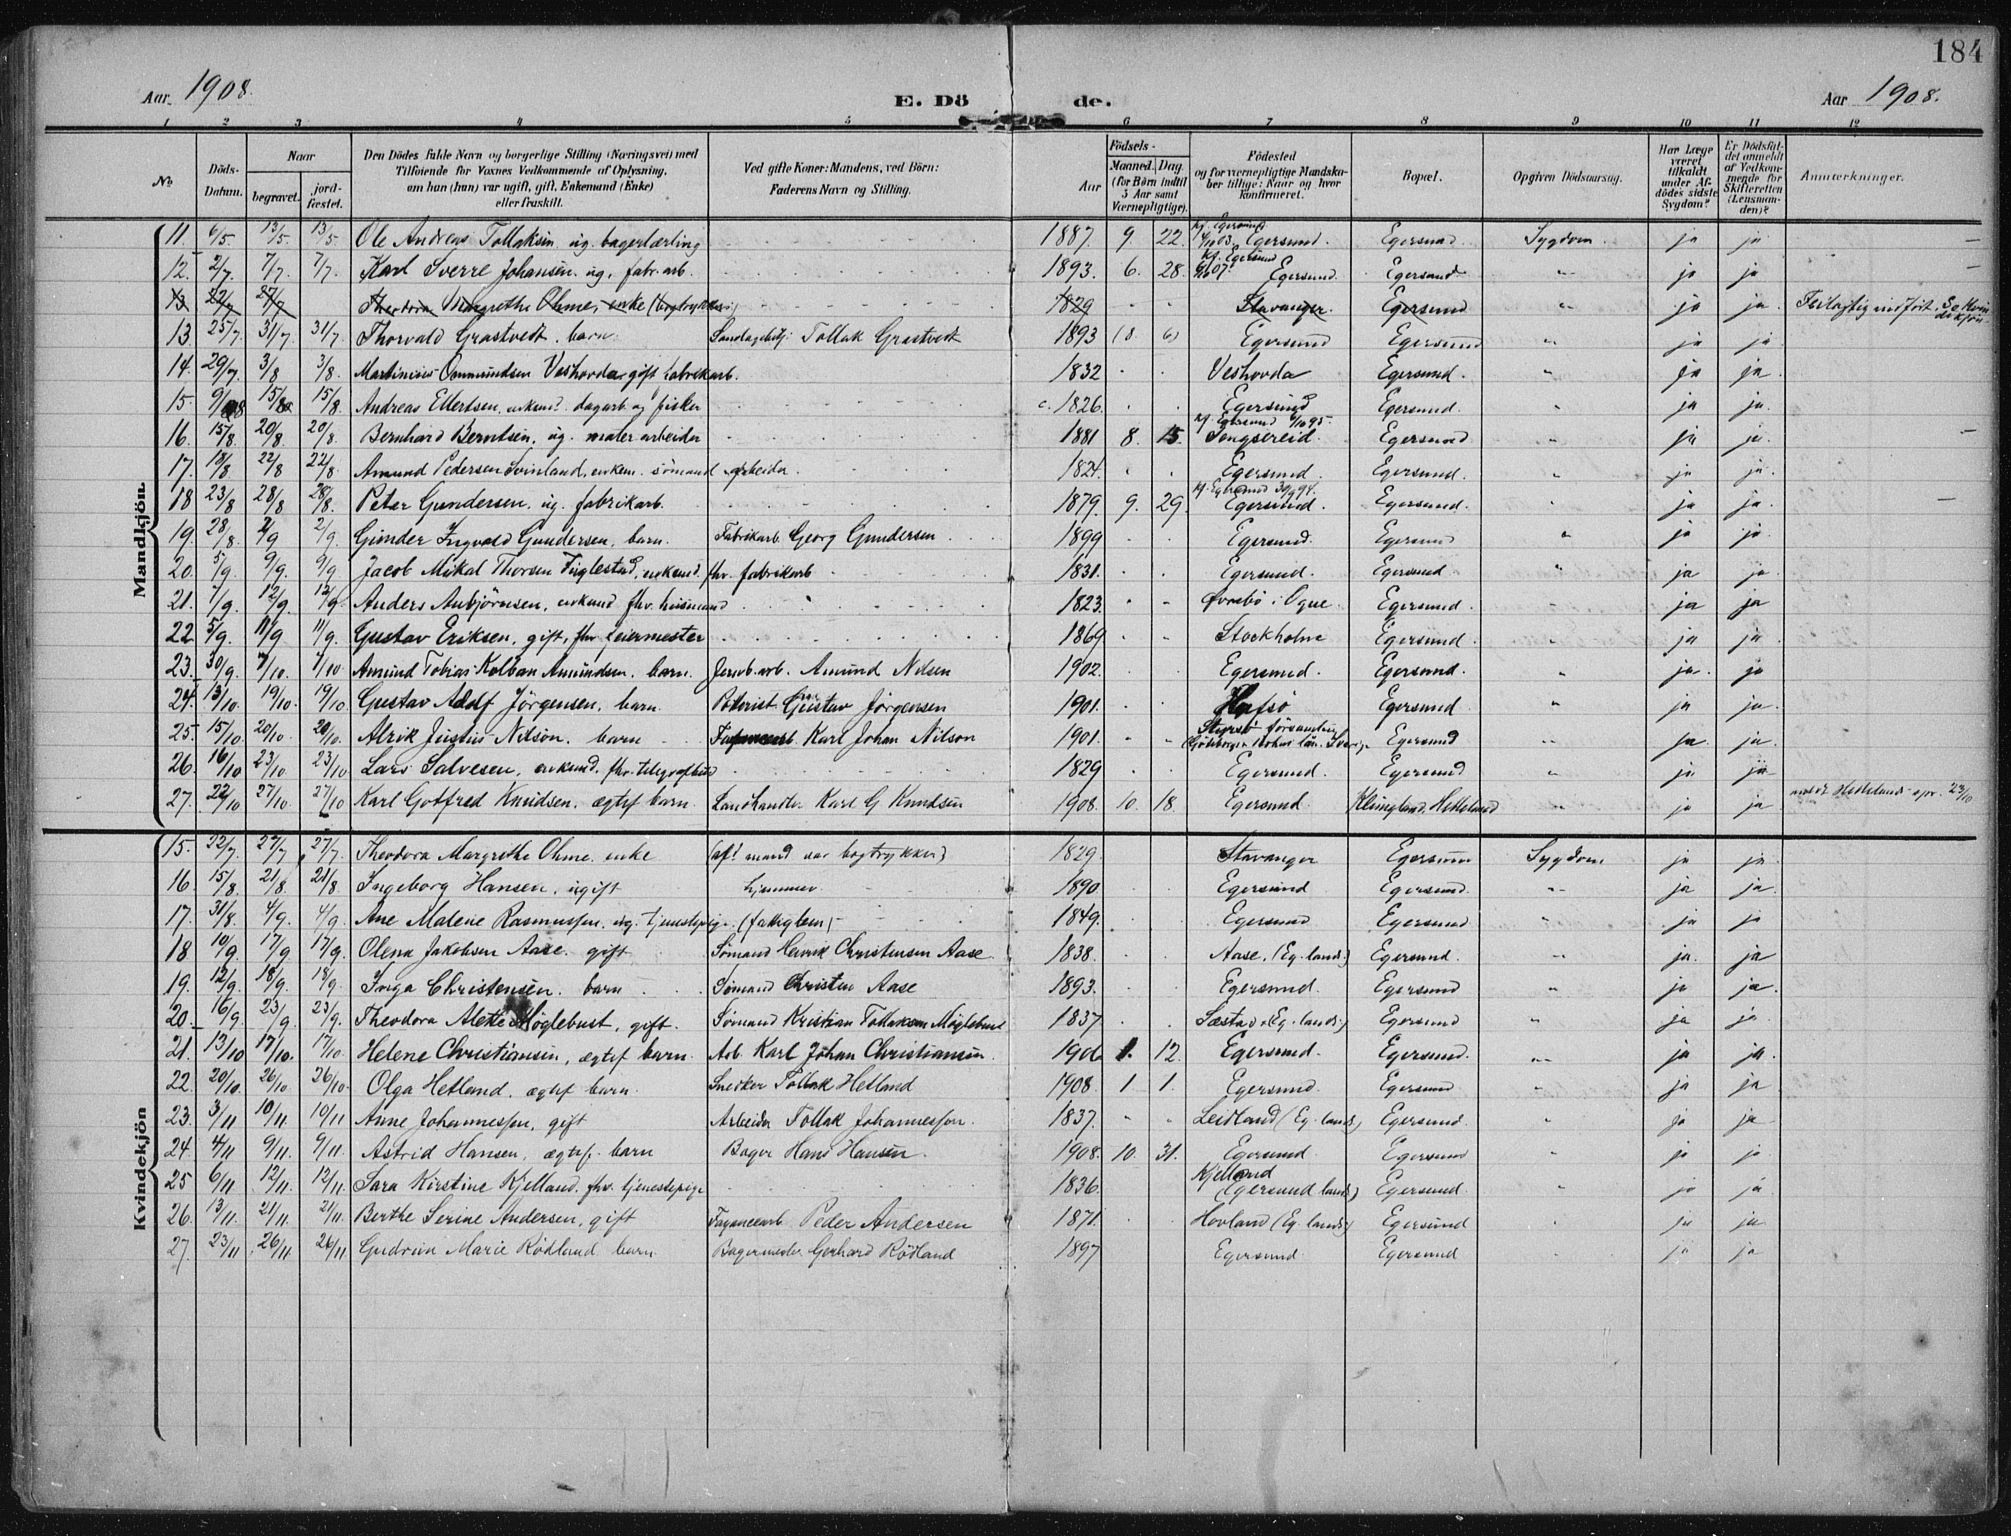 184
Aar 1908. E. Dö de. Aar 1908.
1 2 3 4 5 6 7 8 9 10 11 12
No. Döds-Datum. Naar begravet. jordfæstet. Den Dödes fulde Navn og borgerlige Stilling (Næringsvei) med Tilföiende for Voxnes Vedkommende af Oplysning, om han (hun) var ugift, gift, Enkemand (Enke) eller fraskilt. Ved gifte Koner: Mandens, ved Börn: Faderens Navn og Stilling. Födsels- Aar Maaned. Dag. (for Börn indtil 3 Aar samt Værnepligtige). Födested og for værnepligtige Mandskaber tillige: Naar og hvor konfirmeret. Bopæl. Opgiven Dödsaarsag. Har Læge været tilkaldt under Afdödes sidste Sygdom? Er Dödsfaldet anmeldt af Vedkommende for Skifteretten (Lensmanden)? Anmærkninger.
Mandkjön.
11. 6/5 13/5 13/5 Ole Andreas Tollaksen, ug. bagerlærling 1887 9 22. kf. Egersund 4/10 03. Egersund. Egersund Sygdom. ja ja —
12. 2/7 7/7. 7/7. Karl Sverre Johansen. ug. fabr. arb. 1893. 6. 28. kf. Egersund 07. Egersund Egersund " ja ja —
13 22/7 27/7 Theodora Margrethe Ohme, enke (bogtrykker) 1829 Stavanger Egersund " ja ja Feilagtig indført. Se Kvindekjøn
13 25/7 31/7 31/7 Thorvald Grastvedt. barn Tollak Grastvedt 1893 (8 6) Egersund Egersund " ja ja
14. 29/7. 3/8 3/8. Martinius Ommundsen Veshovda gift fabrikarb. 1832 Veshovda Egersund. " ja ja.
15. 9/8 15/8 15/8. Andreas Ellertsen, enkemd. dagarb. og fisker c. 1826. Egersund Egersund. " ja ja.
16. 15/8. 20/8 20/8. Bernhard Berntsen, ug. maler arbeider 1881 8. 15. kf. Egersund 1/10 95. Tengsereid. Egersund " ja ja. —
17. 18/8 22/8 22/8. Amund Pedersen Svinland, enkem. sømand arbeider. 1824. Egersund. Egersund. " ja ja.
18 23/8 28/8 28/8. Peter Gundersen, ug. fabrikarb. 1879. 9. 29. kf. Egersund 30/9 94. Egersund. Egersund. " ja ja —
19. 28/8. 2/9 2/9. Gunder Ingvald Gundersen, barn. Fabrikarb. Georg Gundersen 1899 Egersund. Egersund " ja ja
20. 5/9. 9/9. 9/9 Jacob Mikal Thorsen Fuglestad, enkemd. fhv. fabrikarb 1831. Egersund. Egersund " ja ja.
21. 7/9. 12/9. 12/9. Anders Anbjørnsen, enkemd fhv. husmand 1823. i Ogne. Egersund. " ja ja
22. 5/9. 11/9 11/9. Gustav Eriksen, gift, fhv. feiermester 1869 Stockholm Egersund. " ja ja.
23. 30/9. 7/10. 7/10 Amund Tobias Kolban Amundsen. barn. Jernb. arb. Amund Nilsen 1902. Egersund. Egersund. " ja. ja
24. 13/10 19/10. 19/10. Gustav Adolf Jörgensen, barn. Gustav Jørgensen 1901. Hafsö Egersund " ja ja.
25. 15/10 20/10. 20/10. Alrik Justus Nilson. barn Karl Johan Nilson 1901. Göteborgs Bohus län. Sverige Egersund " ja. ja.
26. 16/10 23/10 23/10 Lars Salvesen, enkemd. fhv. telegrafbud 1829 Egersund. Egersund " ja ja
27. 22/10 27/10. 27/10 Karl Gotfred Knudsen. ægtef barn Landhandler Karl G Knudsen 1908. 10. 18. Egersund. Hetteland " ja ja anm. t. Hetlands spr. 23/10
Kvindekjön
15. 22/7. 27/7 27/7. Theodora Margrethe Ohme. enke (af! mand var bogtrykker) 1829. Stavanger Egersund Sygdom ja ja.
16. 15/8. 21/8. 21/8. Ingeborg Hansen, ugift hjemmev. 1890 Egersund Egersund. " ja ja.
17. 31/8. 4/9. 4/9. Ane Malene Rasmussen, ug. tjenestepige. (fattiglem) 1849. Egersund Egersund " ja ja
18 10/9. 17/9 17/9. Olena Jakobsen Aase. gift Sømand Henrik Christensen Aase. 1838. Aase. (Eg. lands.) Egersund. " ja. ja
19. 12/9. 18/9. 18/9. Inga Christensen. barn Sømand Christen Aase 1893. Egersund. Egersund " ja ja.
20. 16/9. 23/9 23/9. Theodora Alette Møglebust, gift. Sømand Kristian Tollaksen Møglebust 1837 Sæstad. (Eg. lands.) Egersund " ja ja.
21. 13/10 17/10. 17/10. Helene Christiansen, ægtef barn. Arb. Karl Johan Christiansen. 1906 1. 12. Egersund. Egersund. " ja ja.
22. 20/10. 26/10 26/10. Olga Hetland. ægtef barn. Snekker Tollak Hetland 1908. 1. 1. Egersund. Egersund " ja ja
23. 3/11 10/11. 10/11 Anne Johannessen, gift Arbeider Tollak Johannessen. 1837. Leidland (Eg. lands.) Egersund. " ja ja
24. 4/11 9/11. 9/11. Astrid Hansen, ægtef. barn Bager Hans Hansen. 1908. 10. 31. Egersund. Egersund " ja ja
25 6/11 12/11. 12/11 Sara Kirstine Kjelland. fhv. tjenestepige 1836. Kjelland (Egersund lands.) Egersund. " ja ja.
26. 13/11. 21/11. 21/11. Berthe Serine Andersen, gift Fayancearb Peder Andersen 1871. Hovland (Eg. lands.) Egersund " ja ja
27. 23/11 26/11 26/11. Gudrun Marie Rödland barn. Bagermester Gerhard Rödland 1897 Egersund. Egersund " ja ja